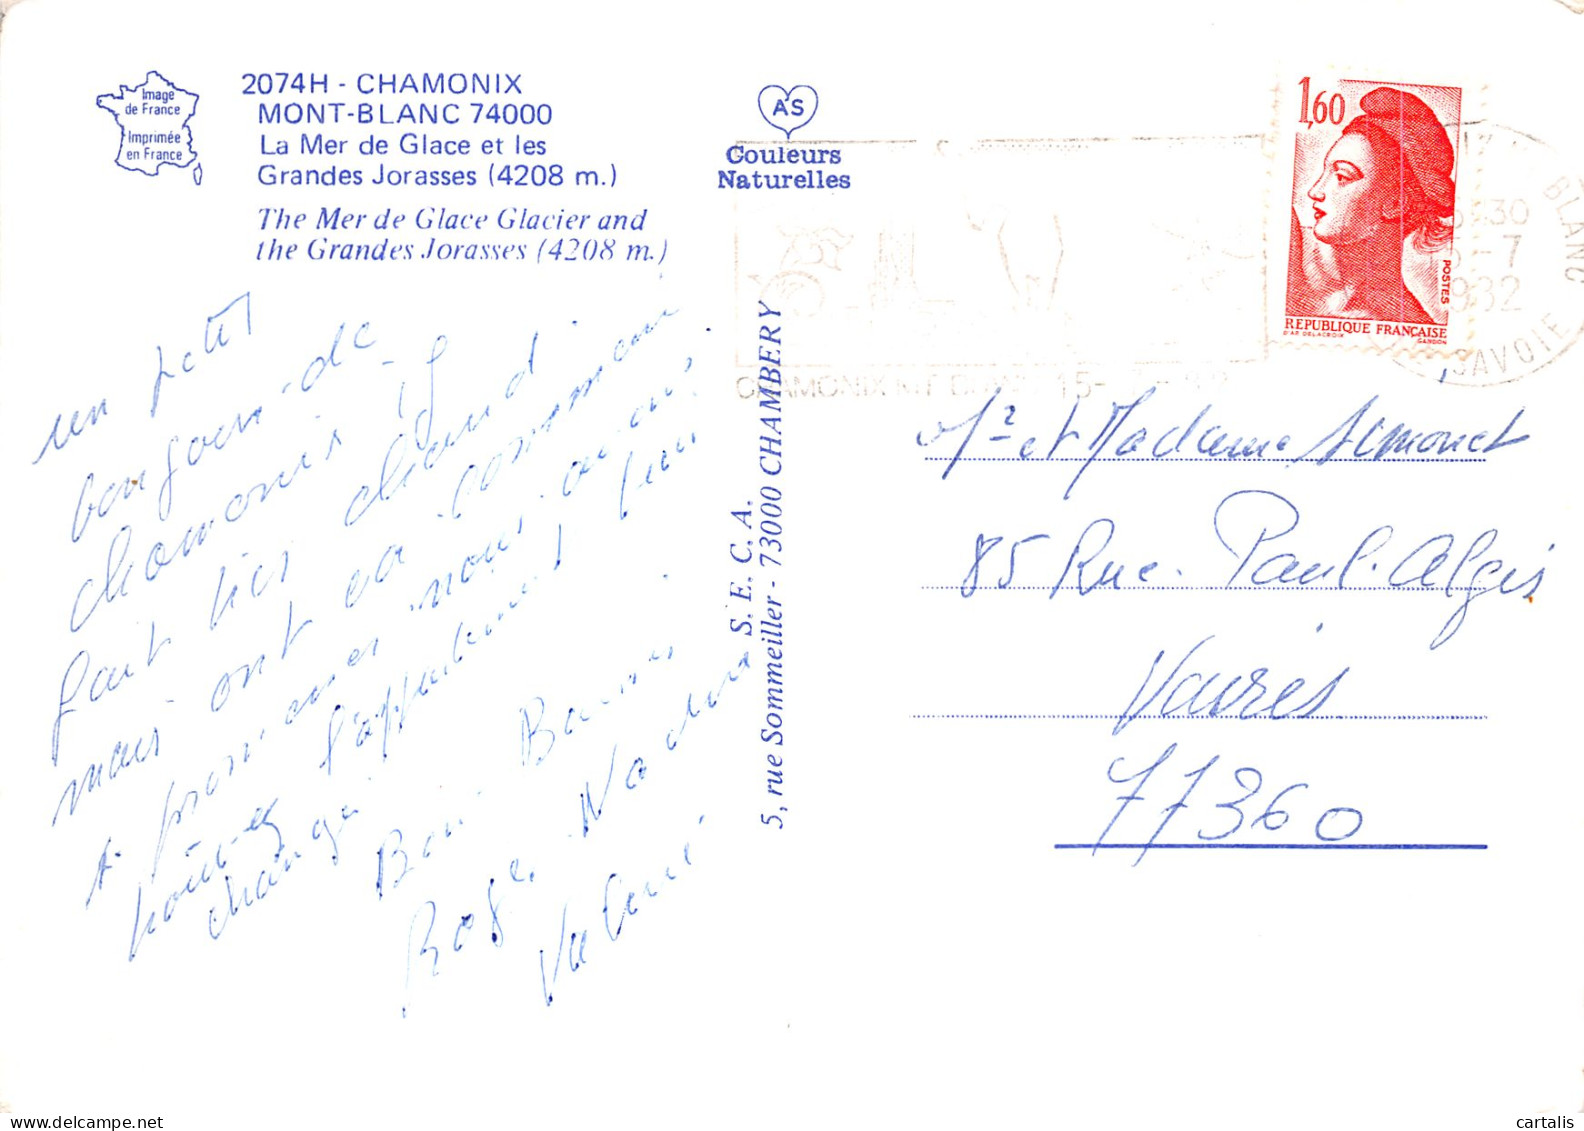 Image
de France
Imprimée
en France
2074H - CHAMONIX
MONT-BLANC 74000
La Mer de Glace et les
Grandes Jorasses (4208 m.)
The Mer de Glace Glacier and
the Grandes Jorasses (4208 m.)
un petit
bonjour de
chamonix il
fait très chaud
mais ont a commencé
promenades nous avons
trouvez l'appartement bien
changé
Bons Baisers
Roge Nadine
Valerie
AS
Couleurs
Naturelles
S. E. C. A.
5, rue Sommeiller - 73000 CHAMBERY
1,60
POSTES
REPUBLIQUE FRANÇAISE
D'AP. DELACROIX
GANDON
30
5-7
1982
BLANC
SAVOIE
CHAMONIX MT 15-
Mr et Madame Simonet
85 Rue. Paul. Algis
Vaires
77360
cartalis